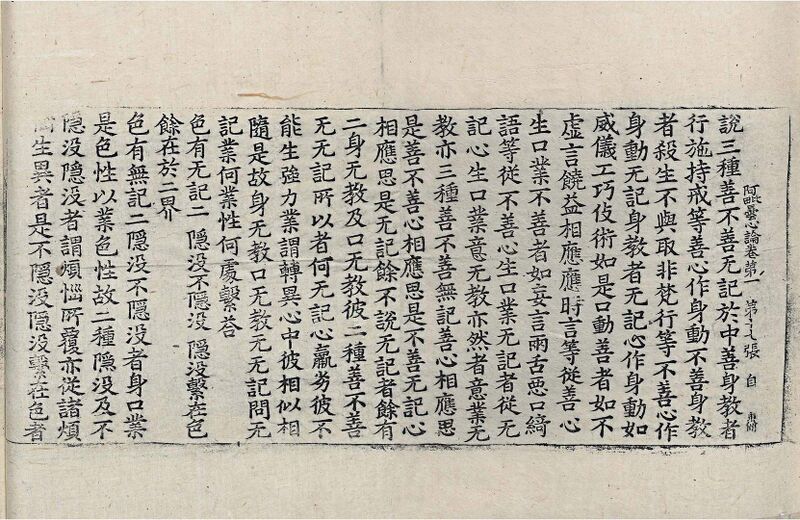 阿毗曇心論卷第一 第十七張 自
說三種善不善无記於中善身教者
行施持戒等善心作身動不善身教
者殺生不與取非梵行等不善心作
身動无記身教者无記心作身動如
威儀工巧伎術如是口動善者如不
虚言饒益相應應時言等從善心
生口業不善者如妄言兩舌惡口綺
語等從不善心生口業无記者從无
記心生口業意无教亦然者意業无
教亦三種善不善無記善心相應思
是善不善心相應思是不善无記心
相應思是无記餘不說无記者餘有
二身无教及口无教彼二種善不善
无无記所以者何无記心羸劣彼不
能生強力業謂轉異心中彼相似相
隨是故身无教口无教无无記問无
記業何業性何處繫荅
色有无記二 隱没不隱没 隱没繫在色
餘在於二界
色有無記二隱没不隱没者身口業
是色性以業色性故二種隱没及不
隱没隱没者謂煩惱所覆亦從諸煩
惱生異者是不隱没隱没繫在色者